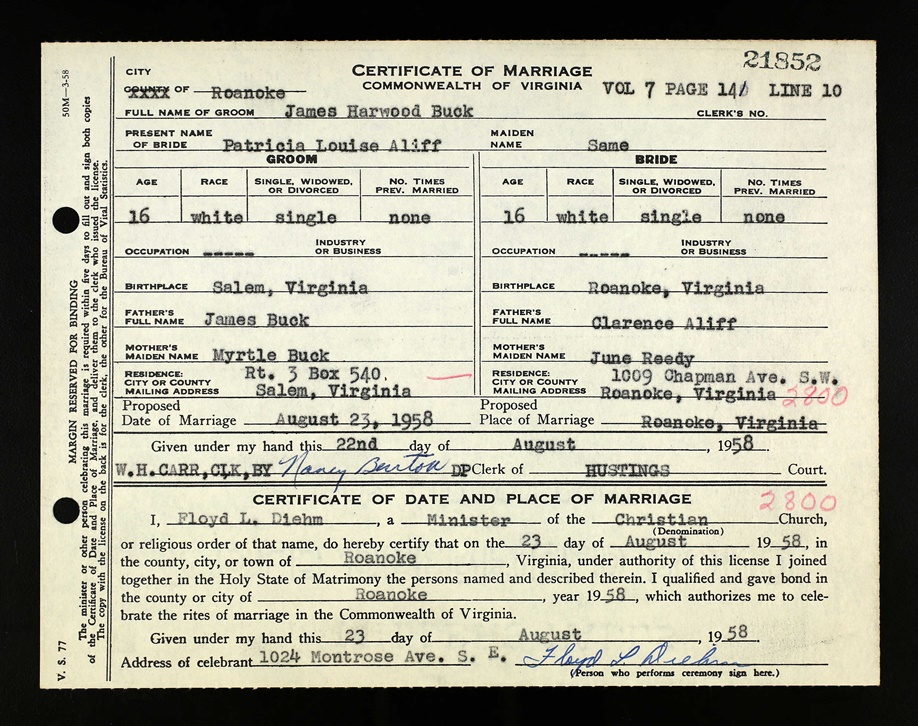 21852
CITY
CERTIFICATE OF MARRIAGE
COUNTY XXXX OF Roanoke
COMMONWEALTH OF VIRGINIA VOL 7 PAGE 141 LINE 10
FULL NAME OF GROOM James Harwood Buck CLERK'S NO.
PRESENT NAME OF BRIDE Patricia Louise Aliff MAIDEN NAME Same
GROOM BRIDE
AGE RACE SINGLE, WIDOWED, OR DIVORCED NO. TIMES PREV. MARRIED AGE RACE SINGLE, WIDOWED, OR DIVORCED NO. TIMES PREV. MARRIED
16 white single none 16 white single none
OCCUPATION ----- INDUSTRY OR BUSINESS OCCUPATION ----- INDUSTRY OR BUSINESS
BIRTHPLACE Salem, Virginia BIRTHPLACE Roanoke, Virginia
FATHER'S FULL NAME James Buck FATHER'S FULL NAME Clarence Aliff
MOTHER'S MAIDEN NAME Myrtle Buck MOTHER'S MAIDEN NAME June Reedy
RESIDENCE: CITY OR COUNTY MAILING ADDRESS Rt. 3 Box 540, Salem, Virginia RESIDENCE: CITY OR COUNTY MAILING ADDRESS 1009 Chapman Ave. S.W. Roanoke, Virginia 2800
Proposed Date of Marriage August 23, 1958 Proposed Place of Marriage Roanoke, Virginia
Given under my hand this 22nd day of August, 1958.
W.H.CARR,CLK,BY Nancy Benton DP Clerk of HUSTINGS Court.
CERTIFICATE OF DATE AND PLACE OF MARRIAGE 2800
I, Floyd L. Diehm, a Minister of the Christian Church,
(Denomination)
or religious order of that name, do hereby certify that on the 23 day of August 1958, in
the county, city, or town of Roanoke, Virginia, under authority of this license I joined
together in the Holy State of Matrimony the persons named and described therein. I qualified and gave bond in
the county or city of Roanoke, year 1958, which authorizes me to cele-
brate the rites of marriage in the Commonwealth of Virginia.
Given under my hand this 23 day of August, 1958.
Address of celebrant 1024 Montrose Ave. S. E. Floyd L Diehm
(Person who performs ceremony sign here.)
50M—3-58
MARGIN RESERVED FOR BINDING
The minister or other person celebrating this marriage is required within five days to fill out and sign both copies
of the Certificate of Date and Place of Marriage, and deliver them to the clerk who issued the license.
The copy with the license on the back is for the clerk, the other for the Bureau of Vital Statistics.
V. S. 77